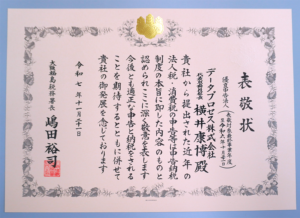 表敬状
優良申告法人
データプロセス株式会社
代表取締役
横井康博殿
貴社から提出された近年の
法人税・消費税の申告等は申告納税
制度の本旨に即した内容のものと
認められここに深く敬意を表します
今後とも適正な申告と納税をされる
ことを期待するとともに併せて
貴社の御発展を念じております
令和七年十一月二十一日
大阪福島税務署長
嶋田裕司